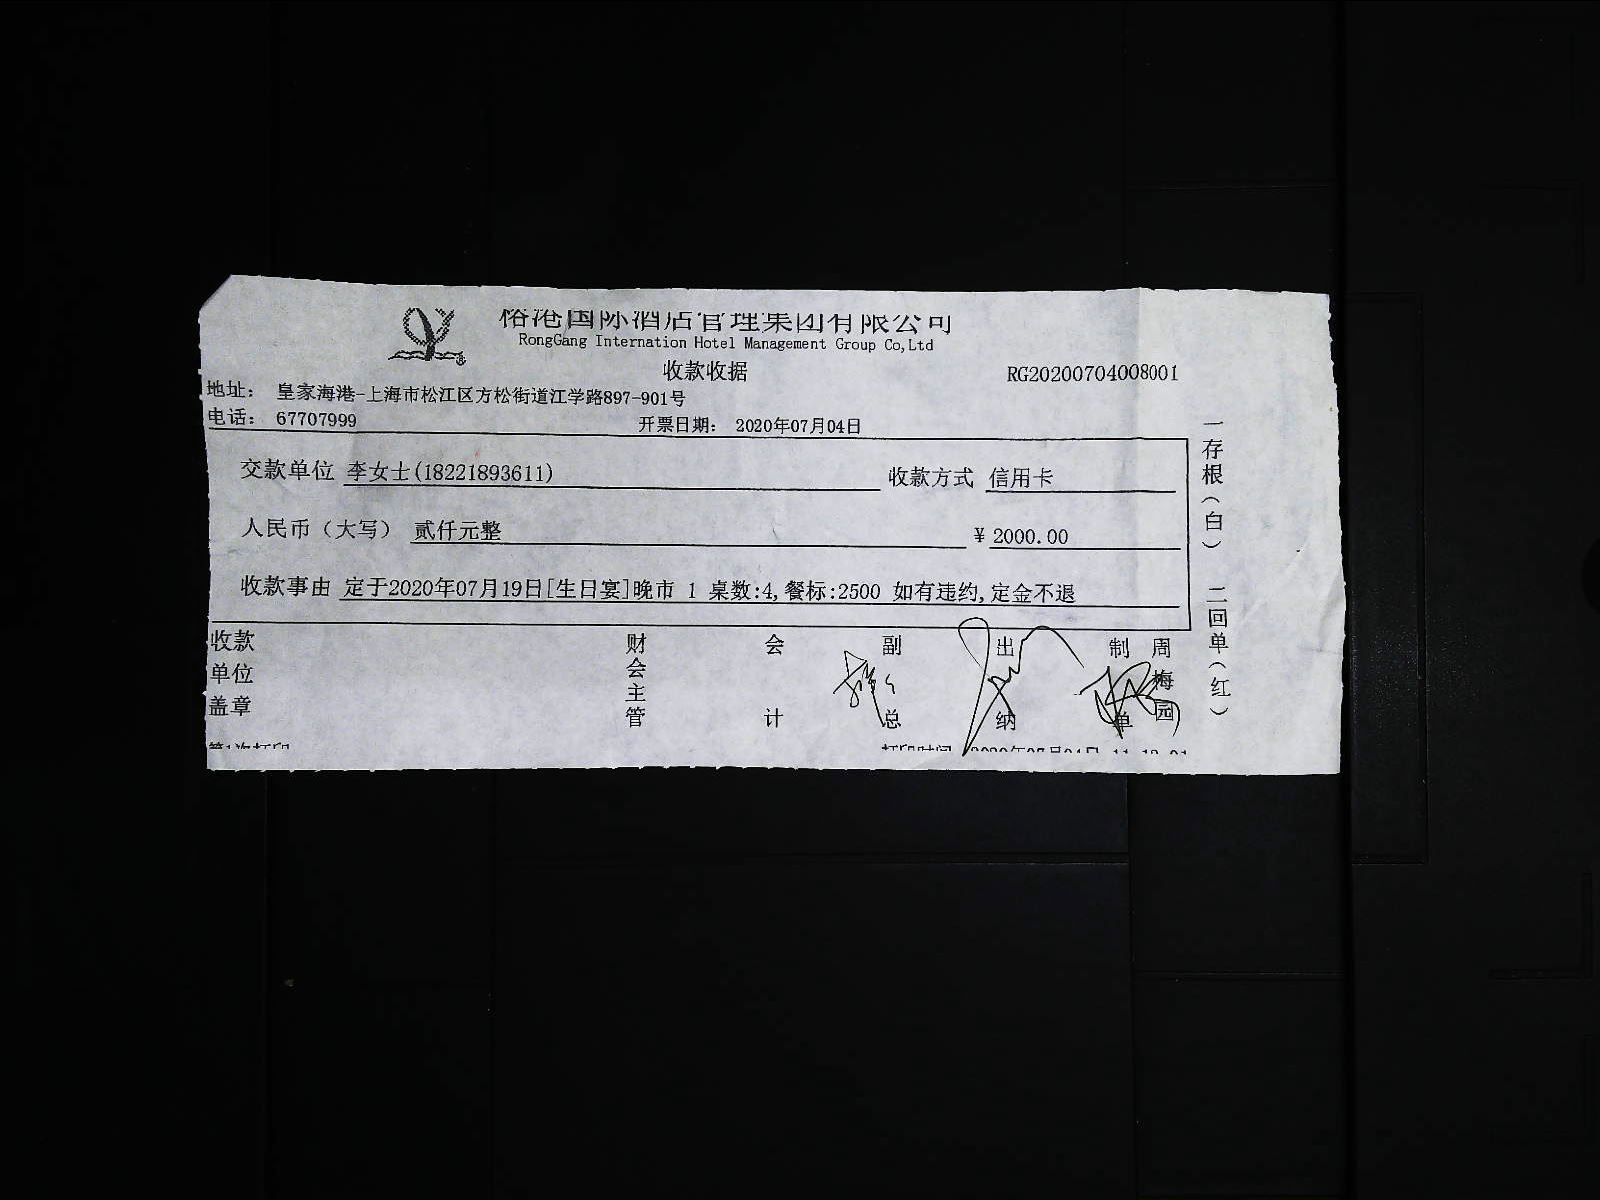 榕港国际酒店管理集团有限公司
RongGang Internation Hotel Management Group Co,Ltd
收款收据
RG20200704008001
地址： 皇家海港-上海市松江区方松街道江学路897-901号
电话： 67707999
开票日期： 2020年07月04日
交款单位 李女士(18221893611)
收款方式 信用卡
人民币（大写） 贰仟元整
¥ 2000.00
收款事由 定于2020年07月19日[生日宴]晚市 1 桌数:4,餐标:2500 如有违约,定金不退
收款单位盖章
财会主管
会计
副总
出纳
制单
周梅园
一存根（白） 二回单（红）
第1次打印
打印时间 2020年07月04日